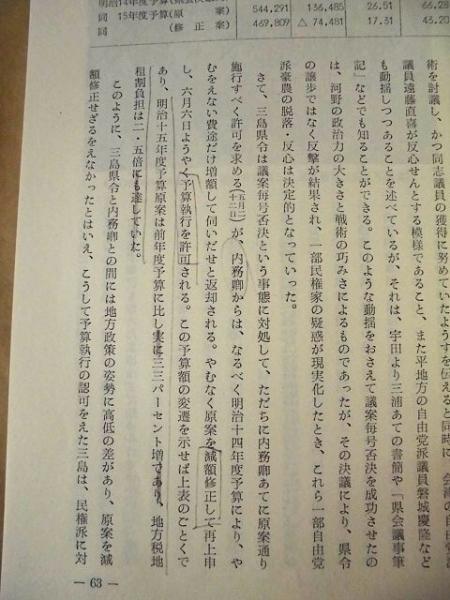 明治14年度予算
544,291 136,485 26.51 66.28
同 15年度予算(原 案)
同 修正案) 469,809 △ 74,481 17.31 43.20
術を討議し、かつ同志議員の獲得に努めていたようすを伝えると同時に、会津の自由党
議員遠藤直喜が反心せんとする模様であること、また平地方の自由党派議員磐城慶隆など
も動揺しつつあることを述べているが、それは、宇田より三浦あての書簡や「県会議事筆
記」などでも知ることができる。このような動揺をおさえて議案毎号否決を成功させたの
は、河野の政治力の大きさと戦術の巧みさによるものであったが、その決議により、県令
の譲歩ではなく反撃が結果され、一部民権家の疑惑が現実化したとき、これら一部自由党
派豪農の脱落・反心は決定的となっていった。
さて、三島県令は議案毎号否決という事態に対処して、ただちに内務卿あてに原案通り
施行すべく許可を求める(五月二十二日)が、内務卿からは、なるべく明治十四年度予算により、や
むをえない費途だけ増額して伺いだせと返却される。やむなく原案を減額修正して再上申
し、六月六日ようやく予算執行を許可される。この予算額の変遷を示せば上表のごとくで
あり、明治十五年度予算原案は前年度予算に比し実に三三パーセント増であり、地方税地
租割負担は二・五倍にも達していた。
このように、三島県令と内務卿との間には地方政策の姿勢に高低の差があり、原案を減
額修正せざるをえなかったとはいえ、こうして予算執行の認可をえた三島は、民権派に対
— 63 —